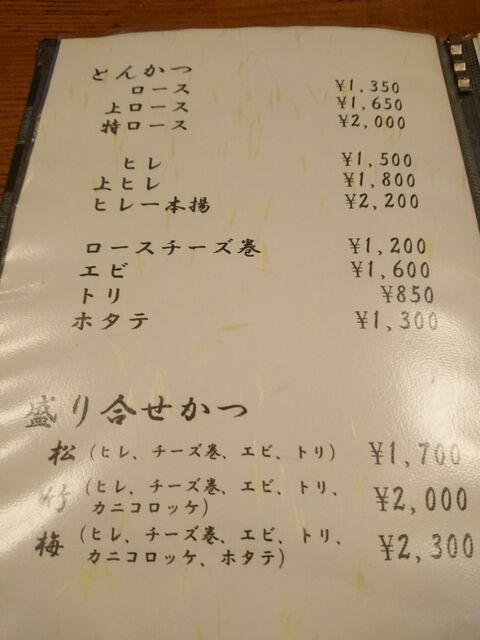 とんかつ
ロース ¥1,350
上ロース ¥1,650
特ロース ¥2,000
ヒレ ¥1,500
上ヒレ ¥1,800
ヒレ一本揚 ¥2,200
ロースチーズ巻 ¥1,200
エビ ¥1,600
トリ ¥850
ホタテ ¥1,300
盛り合せかつ
松(ヒレ、チーズ巻、エビ、トリ) ¥1,700
竹(ヒレ、チーズ巻、エビ、トリ、 ¥2,000
カニコロッケ)
梅(ヒレ、チーズ巻、エビ、トリ、 ¥2,300
カニコロッケ、ホタテ)